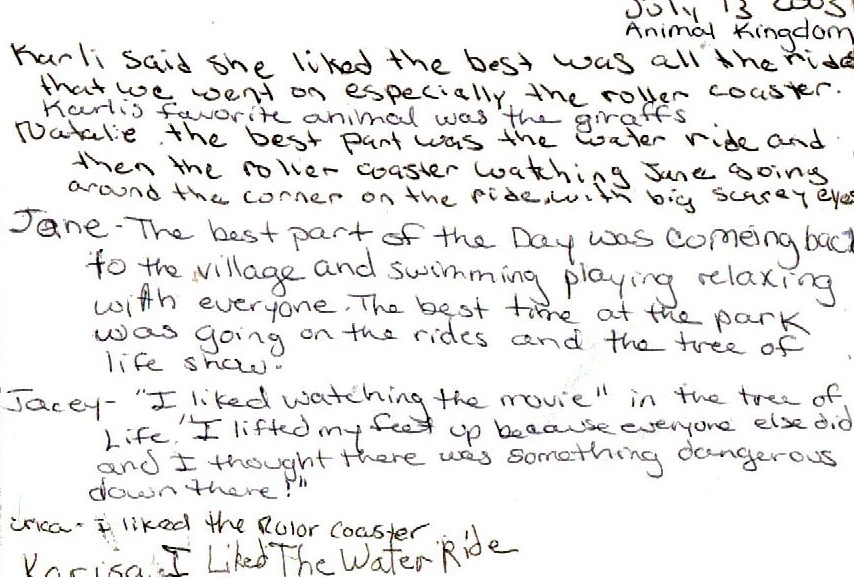 July 13 2005
Animal Kingdom
Karli said she liked the best was all the ride
that we went on especially the roller coaster.
Karli's favorite animal was the giraffs
Natalie the best part was the water ride and
then the roller coaster watching Jane going
around the corner on the ride, with big scarey eyes
Jane - The best part of the Day was comeing back
to the village and swimming playing relaxing
with everyone. The best time at the park
was going on the rides and the tree of
life show.
Jacey - "I liked watching the movie" in the tree of
Life. "I lifted my feet up because everyone else did
and I thought there was something dangerous
down there!"
Erica - I liked the Rolor coaster
Karisa I Liked The Water Ride